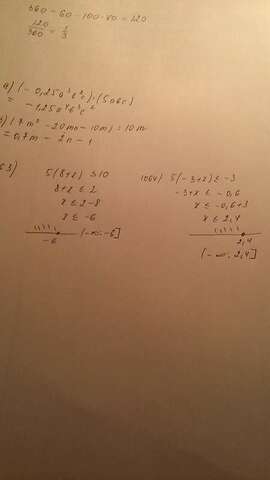 360 - 60 - 100 - 80 = 120
120/360 = 1/3
a) (- 0,25a³b²c) · (5abc)
= - 1,25a⁴b³c²
(7m² - 20mn - 10m) : 10m
= 0,7m - 2n - 1
63)
5(8+x) ≤ 10
8+x ≤ 2
x ≤ 2-8
x ≤ -6
-6 (-∞; -6]
1064) 5(-3+x) ≤ -3
-3+x ≤ -0,6
x ≤ -0,6+3
x ≤ 2,4
2,4
(-∞; 2,4]